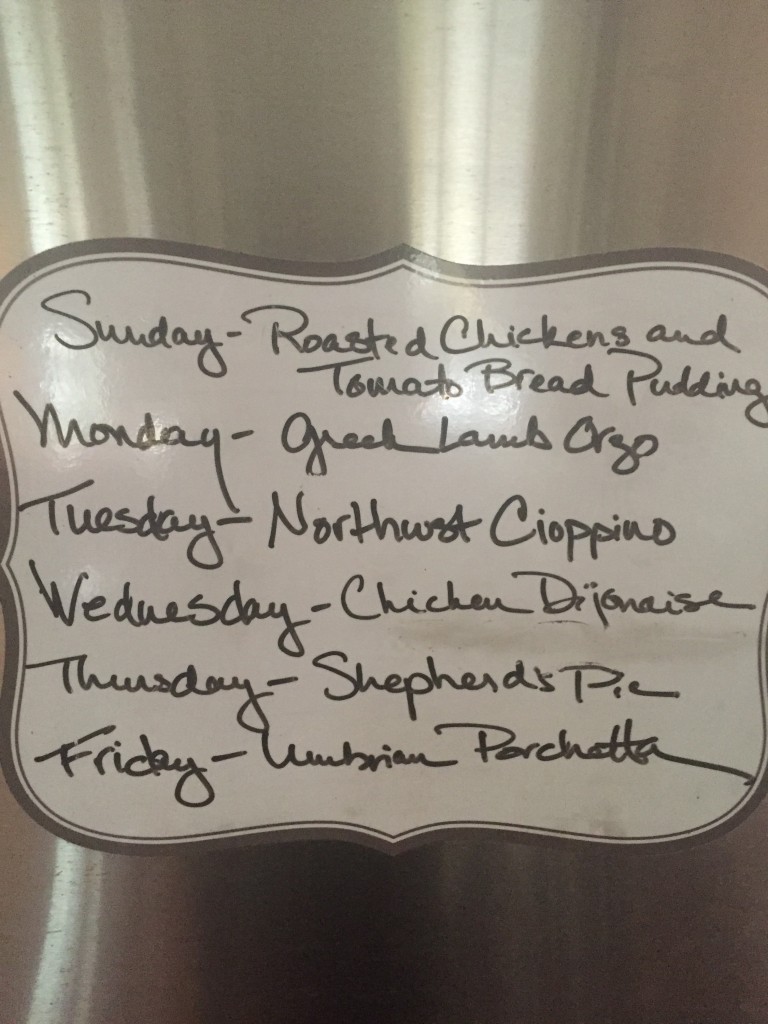 Sunday - Roasted Chickens and
Tomato Bread Pudding
Monday - Greek Lamb Orzo
Tuesday - Northwest Cioppino
Wednesday - Chicken Dijonaise
Thursday - Shepherd's Pie
Friday - Umbrian Porchetta